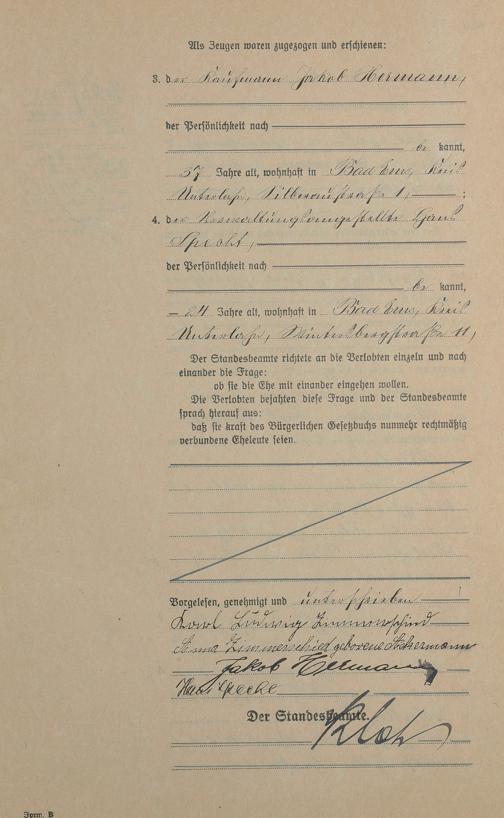 Als Zeugen waren zugezogen und erschienen:
3. der Kaufmann Jakob Hermann,
der Persönlichkeit nach
be kannt,
57 Jahre alt, wohnhaft in Bad Ems, Kreis
Unterlahn, Silberaustraße 1, ;
4. der Verwaltungsangestellte Hans
Specht,
der Persönlichkeit nach
be kannt,
24 Jahre alt, wohnhaft in Bad Ems, Kreis
Unterlahn, Wintersbergstraße 11,
Der Standesbeamte richtete an die Verlobten einzeln und nach
einander die Frage:
ob sie die Ehe mit einander eingehen wollen.
Die Verlobten bejahten diese Frage und der Standesbeamte
sprach hierauf aus:
daß sie kraft des Bürgerlichen Gesetzbuchs nunmehr rechtmäßig
verbundene Eheleute seien.
Vorgelesen, genehmigt und unterschrieben
Karl Ludwig Zimmerschied
Anna Zimmerschied geborene
Jakob Hermann
Hans Specht
Der Standesbeamte.
Form. B